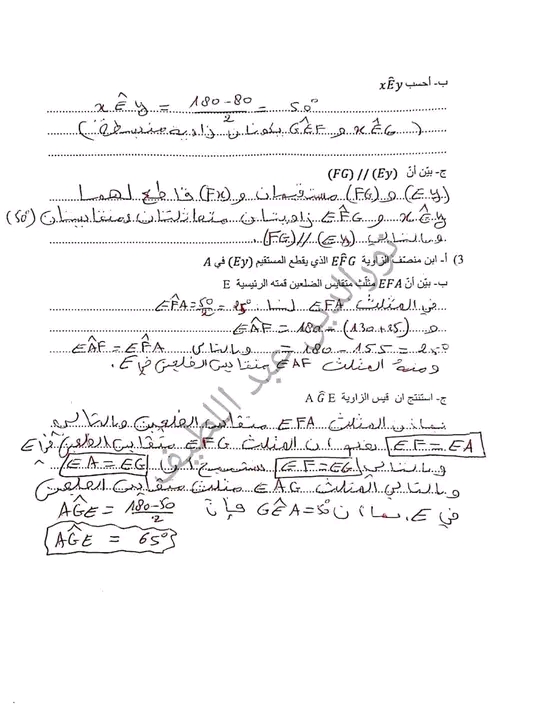 ب- أحسب xÊy
xÊy = (180-80)/2 = 50°
( xÊG و GÊF يكونان زاوية منبسطة )
ج- بيّن أنّ (Ey) // (FG)
(Ey) و (FG) مستقيمان و (Fx) قاطع لهما
xÊy و EF̂G زاويتان متماثلتان ومتقايستان (50°)
وبالتالي (Ey) // (FG).
3) أ- ابن منصّف الزاوية EF̂G الذي يقطع المستقيم (Ey) في A
ب- بيّن أنّ EFA مثلّث متقايس الضلعين قمته الرئيسية E
في المثلث EFA لنا : EF̂A = 50/2 = 25°
و EÂF = 180 - (130+25)
= 180 - 155 = 25° وبالتالي EÂF = EF̂A
ومنه المثلث EAF متقايس الضلعين في E.
ج- استنتج ان قيس الزاوية AĜE
بما أنّ المثلث EFA متقايس الضلعين وبالتالي
EF = EA وبما أن المثلث EFG متقايس الضلعين في E
وبالتالي EF = EG نستنتج أن EA = EG
وبالتالي المثلث EAG مثلث متقايس الضلعين
في E. بما أن GÊA = 50° فإنّ AĜE = (180-50)/2
AĜE = 65°
نور الدين عبد اللطيف